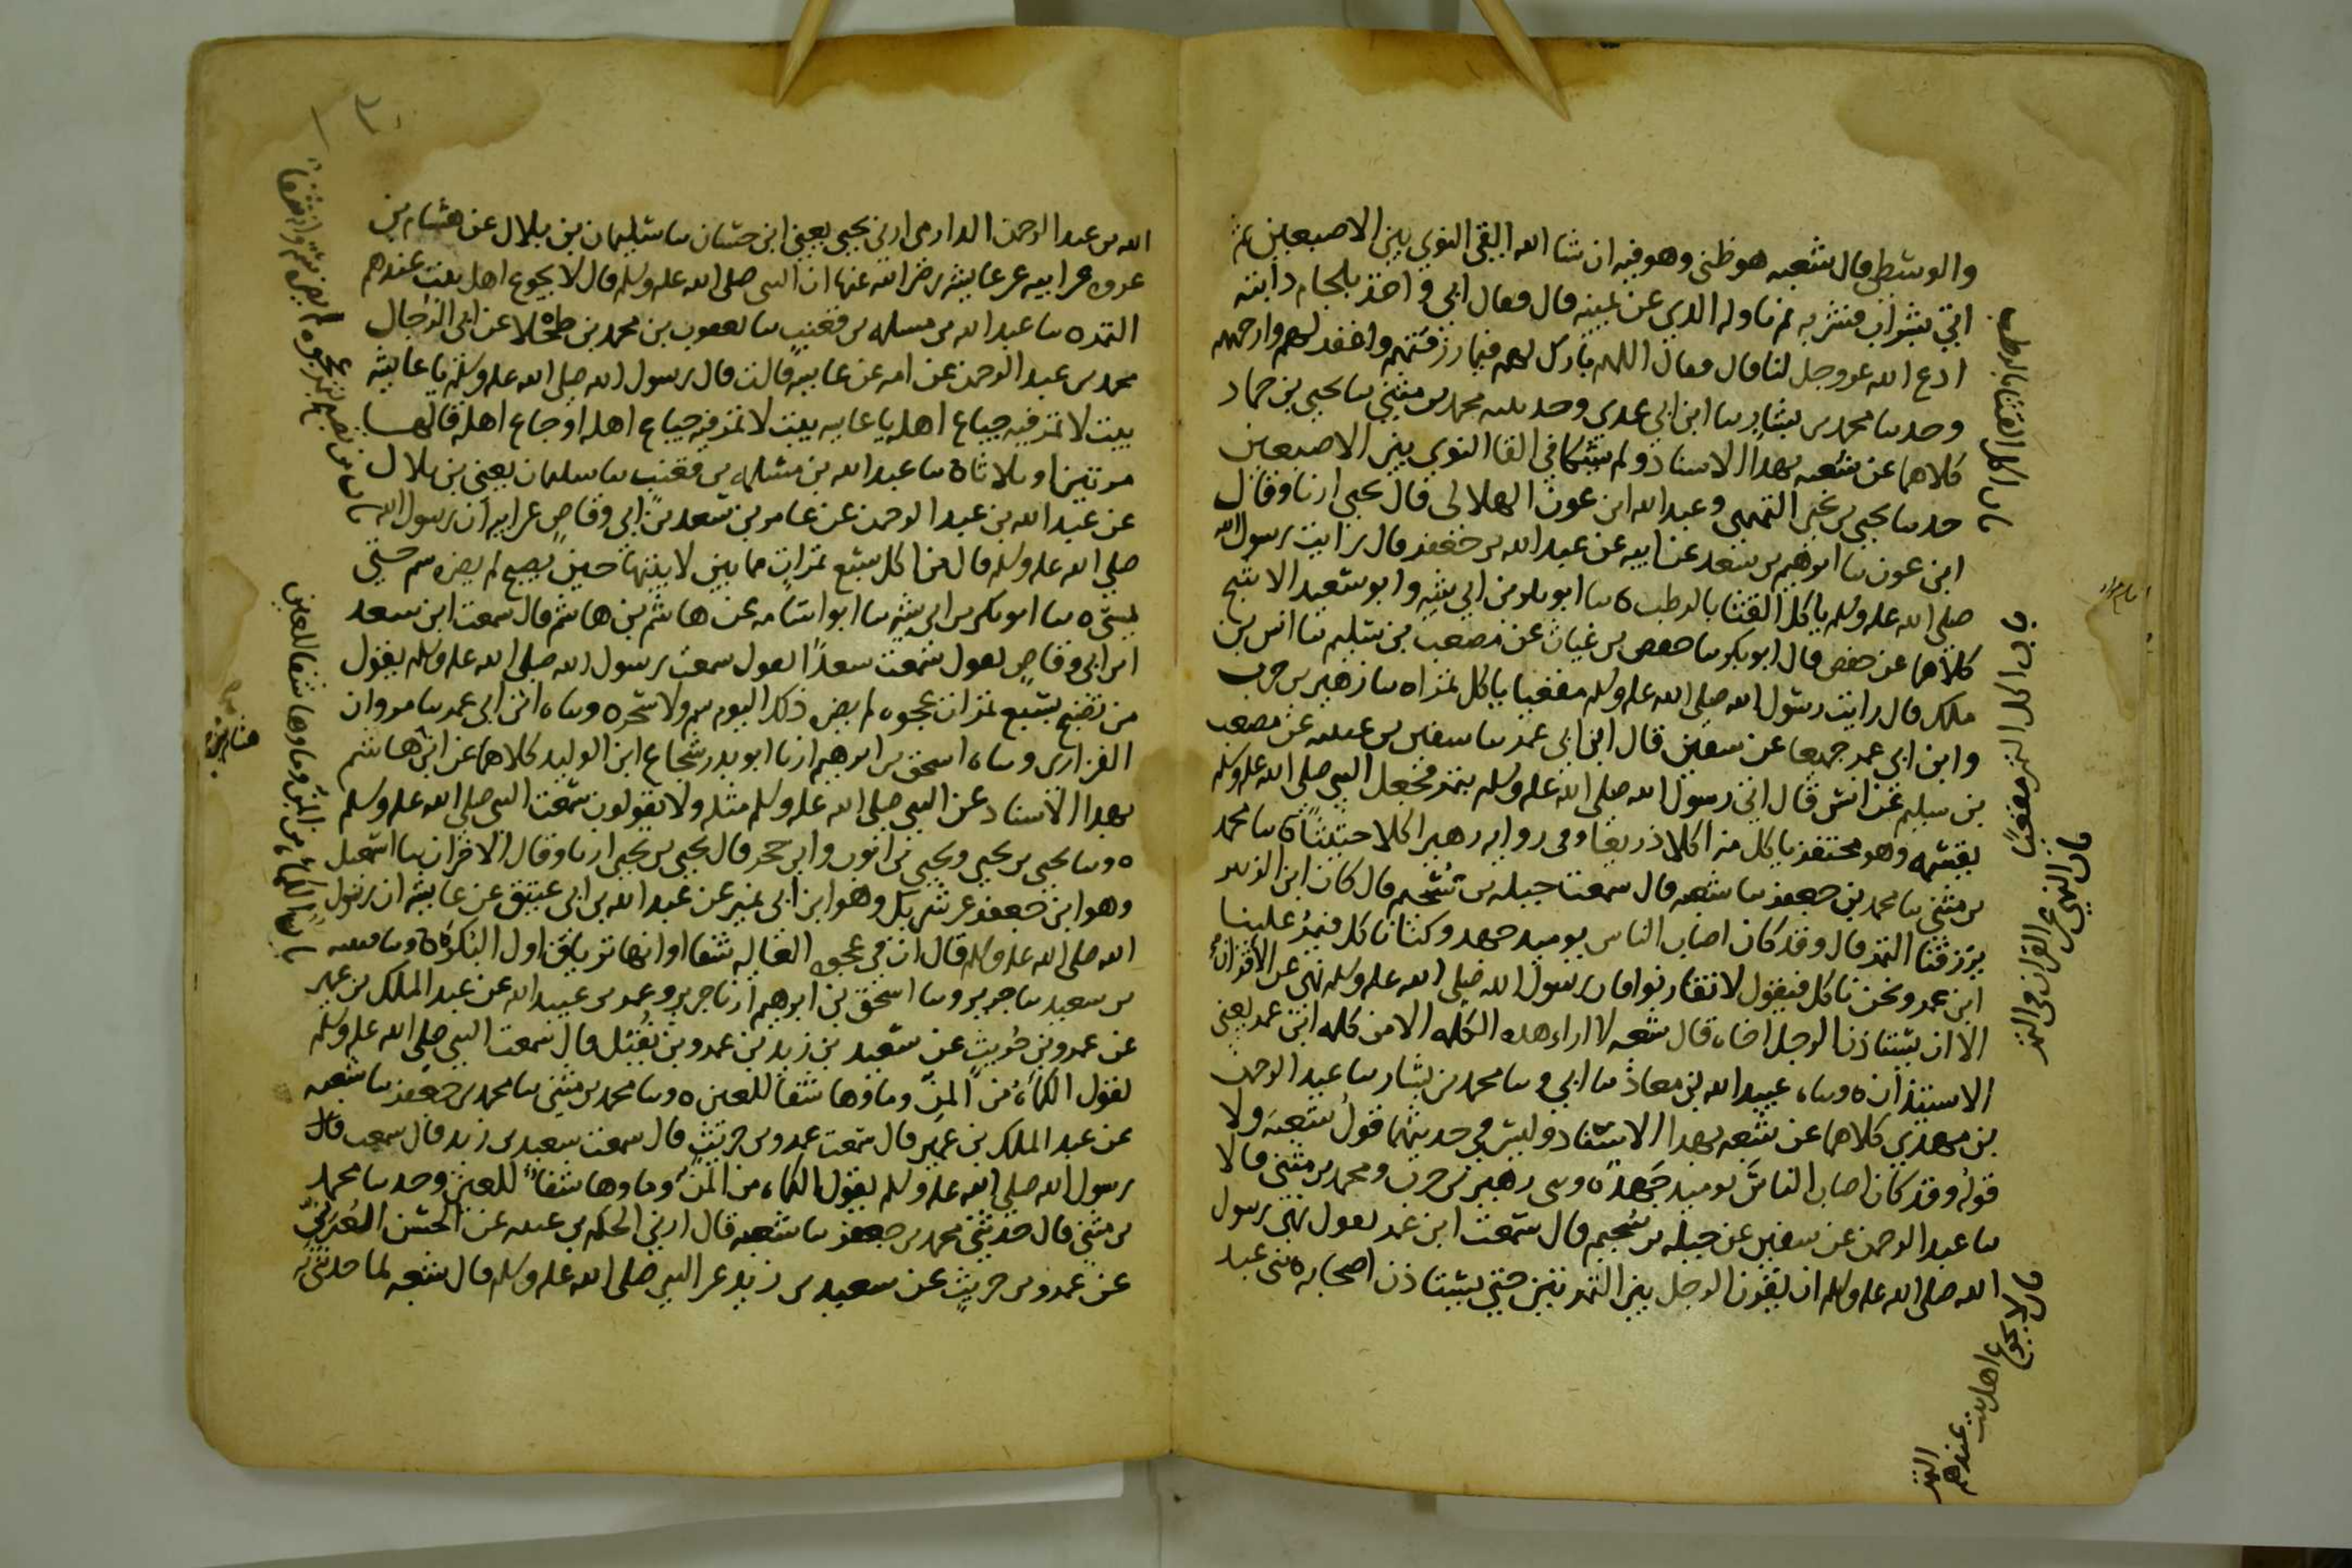 والوسطى قال شعبه هو ظنى وهو فيه ان شا الله القى النوى بين الاصبعين ثم
اتى بشراب فشربه ثم ناوله الذى عن يمينه قال فقال ابى واخذ بلجام دابته
ادع الله عز وجل لنا قال فقال اللهم بارك لهم فيما رزقتهم واغفر لهم وارحمهم
وحدثنا محمد بن بشار نا ابن ابى عدى وحدثنيه محمد بن مثنى نا يحيى بن حماد
كلاهما عن شعبه بهذا الاسناد ولم يشكا فى القا النوى بين الاصبعين
حدثنا يحيى بن يحيى التميمى وعبد الله ابن عون الهلالى قال يحيى ارنا وقال
ابن عون نا ابرهيم بن سعد عن ابيه عن عبد الله بن جعفر قال رايت رسول الله
صلى الله عليه وسلم ياكل القثا بالرطب ه نا ابو بكر بن ابى شيبه وابو سعيد الاشج
كلاهما عن حفص قال ابو بكر نا حفص بن غياث عن مصعب بن سليم نا انس بن
ملك قال رايت رسول الله صلى الله عليه وسلم مقعيا ياكل تمرا ه نا زهير بن حرب
وابن ابى عمر جميعا عن سفين قال ابن ابى عمر نا سفين بن عيينه عن مصعب
بن سليم عن انس قال اتى رسول الله صلى الله عليه وسلم بتمر فجعل النبى صلى الله عليه وسلم
يقسمه وهو محتفز ياكل منه اكلا ذريعا وفى روايه زهير اكلا حثيثا ه نا محمد
بن مثنى نا محمد بن جعفر نا شعبه قال سمعت جبله بن سحيم قال كان ابن الزبير
يرزقنا التمر قال وقد كان اصاب الناس يوميذ جهد وكنا ناكل فيمر علينا
ابن عمر ونحن ناكل فيقول لا تقارنوا فان رسول الله صلى الله عليه وسلم نهى عن الاقران
الا ان يستاذن الرجل اخاه قال شعبه لا ارى هذه الكلمه الا من كلمه ابن عمر يعنى
الاستيذان ه ونا ه عبيد الله بن معاذ نا ابى ونا محمد بن بشار نا عبد الرحمن
بن مهدى كلاهما عن شعبه بهذا الاسناد وليس فى حديثهما قول شعبه ولا
قوله وقد كان اصاب الناس يوميذ جهد ه ونى زهير بن حرب ومحمد بن مثنى قالا
نا عبد الرحمن عن سفين عن جبله بن سحيم قال سمعت ابن عمر يقول نهى رسول
الله صلى الله عليه وسلم ان يقرن الرجل بين التمرتين حتى يستاذن اصحابه ه نى عبد
باب اكل القثا بالرطب
باب اكل التمر مقعيا
باب النهى عن القران فى التمر
باب لا يجوع اهل بيت عندهم التمر
الله بن عبد الرحمن الدارمى ارنى يحيى يعنى ابن حسان نا سليمان بن بلال عن هشام بن
عروه عن ابيه عن عايشه رضى الله عنها ان النبى صلى الله عليه وسلم قال لا يجوع اهل بيت عندهم
التمر ه نا عبد الله بن مسلمه بن قعنب نا يعقوب بن محمد بن طحلا عن ابى الرجال
محمد بن عبد الرحمن عن امه عن عايشه قالت قال رسول الله صلى الله عليه وسلم يا عايشه
بيت لا تمر فيه جياع اهله يا عايشه بيت لا تمر فيه جياع اهله او جاع اهله قالها
مرتين او ثلاثا ه نا عبد الله بن مسلمه بن قعنب نا سليمان يعنى بن بلال
عن عبد الله بن عبد الرحمن عن عامر بن سعد بن ابى وقاص عن ابيه ان رسول الله
صلى الله عليه وسلم قال من اكل سبع تمرات مما بين لابتيها حين يصبح لم يضره سم حتى
يمسى ه نا ابو بكر بن ابى شيبه نا ابو اسامه عن هاشم بن هاشم قال سمعت ابن سعد
ابن ابى وقاص يقول سمعت سعدا يقول سمعت رسول الله صلى الله عليه وسلم يقول
من تصبح بسبع تمرات عجوه لم يضره ذلك اليوم سم ولا سحر ه ونا ه ابن ابى عمر نا مروان
الفزارى ونا ه اسحق بن ابرهيم ارنا ابو بدر شجاع ابن الوليد كلاهما عن ابن هاشم
بهذا الاسناد عن النبى صلى الله عليه وسلم مثله ولا يقولون سمعت النبى صلى الله عليه وسلم
ه ونا يحيى بن يحيى ويحيى بن ايوب وابن حجر قال يحيى بن يحيى ارنا وقال الاخران نا اسمعيل
وهو ابن جعفر عن شريك وهو ابن ابى نمر عن عبد الله بن ابى عتيق عن عايشه ان رسول
الله صلى الله عليه وسلم قال ان فى عجوه العاليه شفا او انها ترياق اول البكره ه ونا قتيبه
بن سعيد نا جرير ونا اسحق بن ابرهيم ارنا جرير وعمر بن عبيد الله عن عبد الملك بن عمير
عن عمرو بن حريث عن سعيد بن زيد بن عمرو بن نفيل قال سمعت النبى صلى الله عليه وسلم
يقول الكماه من المن وماوها شفا للعين ه ونا محمد بن مثنى نا محمد بن جعفر نا شعبه
عن عبد الملك بن عمير قال سمعت عمرو بن حريث قال سمعت سعيد بن زيد قال سمعت قال
رسول الله صلى الله عليه وسلم يقول الكماه من المن وماوها شفا للعين وحدثنا محمد
بن مثنى قال حدثنى محمد بن جعفر نا شعبه قال ارنى الحكم بن عتيبه عن الحسن العرنى
عن عمرو بن حريث عن سعيد بن زيد عن النبى صلى الله عليه وسلم قال شعبه لما حدثنى به
باب الكماه من المن وماوها شفا للعين